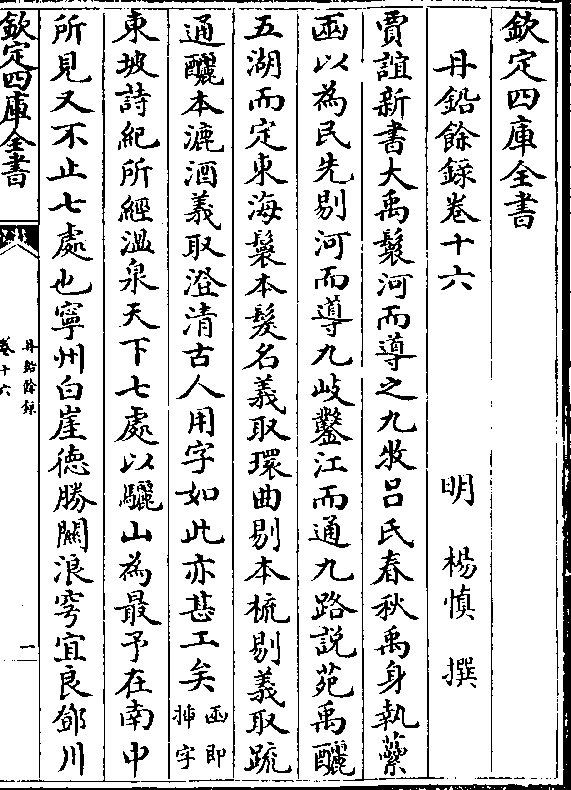 欽定四庫全書
丹鉛餘録巻十六
明 楊慎 撰
賈誼新書大禹鬟河而導之九牧吕氏春秋禹身執虆
臿以為民先剔河而導九岐鑿江而通九路説苑禹釃
五湖而定東海鬟本髮名義取環曲剔本梳剔義取疏
通釃本漉酒義取澄清古人用字如此亦甚工矣臿即揷字
東坡詩紀所經温泉天下七處以驪山為最予在南中
所見又不止七處也寧州白崖徳勝關浪穹宜良鄧川
欽定四庫全書
丹鉛餘録
巻十六
一